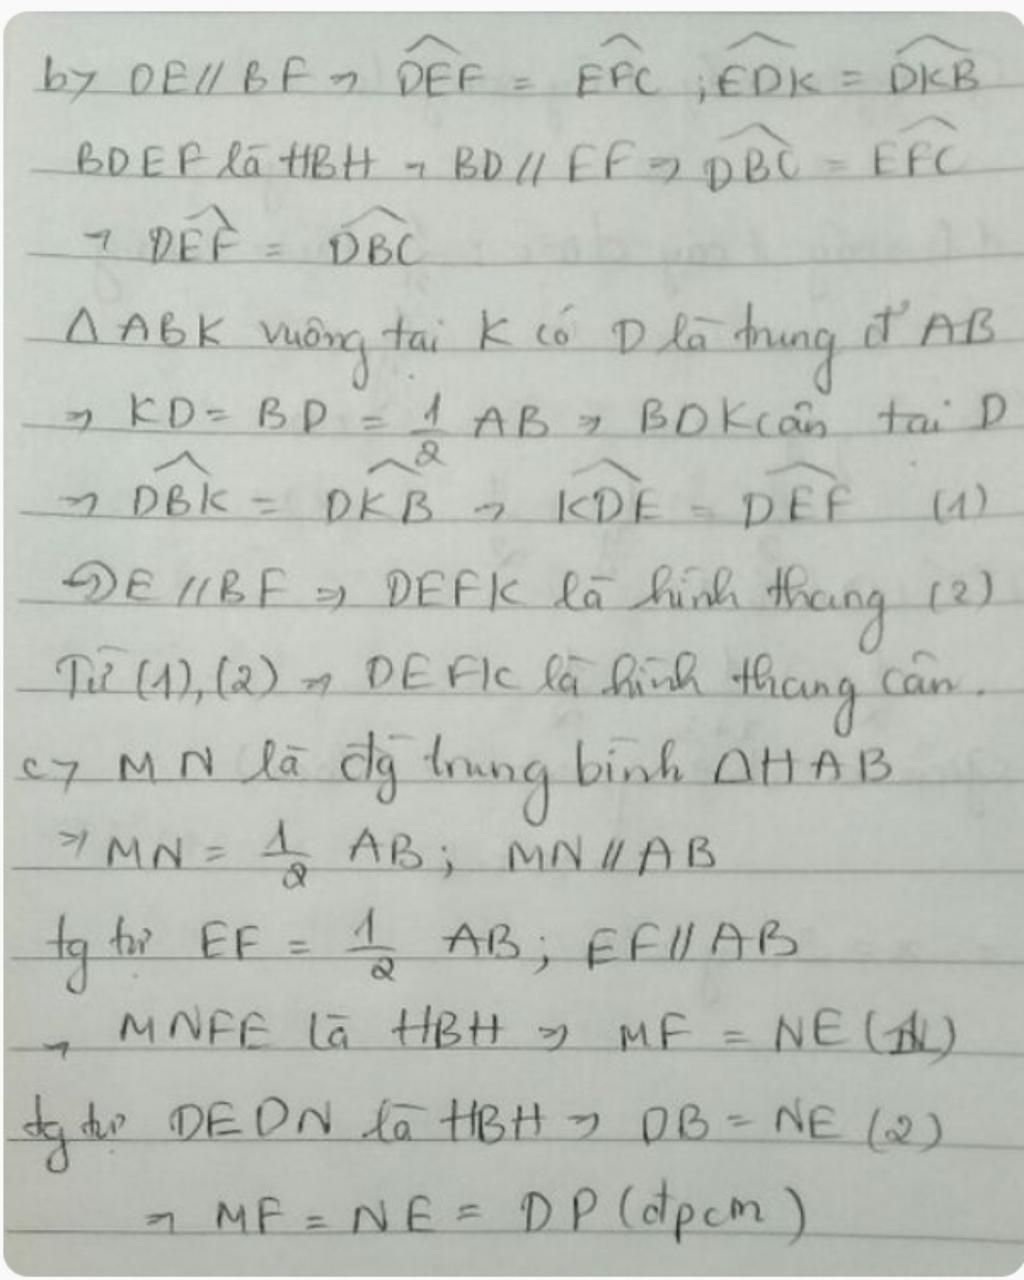 b, DE // BF → \widehat{DEF} = \widehat{EFC} ; \widehat{EDK} = \widehat{DKB}
BDEF là HBH → BD // EF ⇒ \widehat{DBC} = \widehat{EFC}
→ \widehat{DEF} = \widehat{DBC}
Δ ABK vuông tại K có D là trung đ' AB
⇒ KD = BD = 1/2 AB ⇒ BDK cân tại D
⇒ \widehat{DBK} = \widehat{DKB} → \widehat{KDE} = \widehat{DEF} (1)
DE // BF ⇒ DEFK là hình thang (2)
Từ (1), (2) ⇒ DEFK là hình thang cân.
c, MN là đg trung bình ΔHAB
⇒ MN = 1/2 AB ; MN // AB
tg tự EF = 1/2 AB ; EF // AB
→ MNFE là HBH ⇒ MF = NE (1)
tg tự DEDN là HBH → DB = NE (2)
→ MF = NE = DP (đpcm)